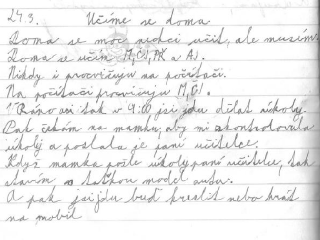 24.3. Učíme se doma
Doma se moc nechci učit, ale musím.
Doma se učím M, ČJ, PK a AJ.
Někdy i procvičuju na počítači.
Na počítači procvičuju M, ČJ.
Ráno asi tak v 9:00 jsi jdu dělat úkoly.
Pak čekám na mamku, aby mi zkontrolovala
úkoly a poslala je paní učitelce.
Když mamka pošle úkoly paní učitelce, tak
stavím s taťkou model autu.
A pak jsi jdu buď kreslit nebo hrát
na mobil